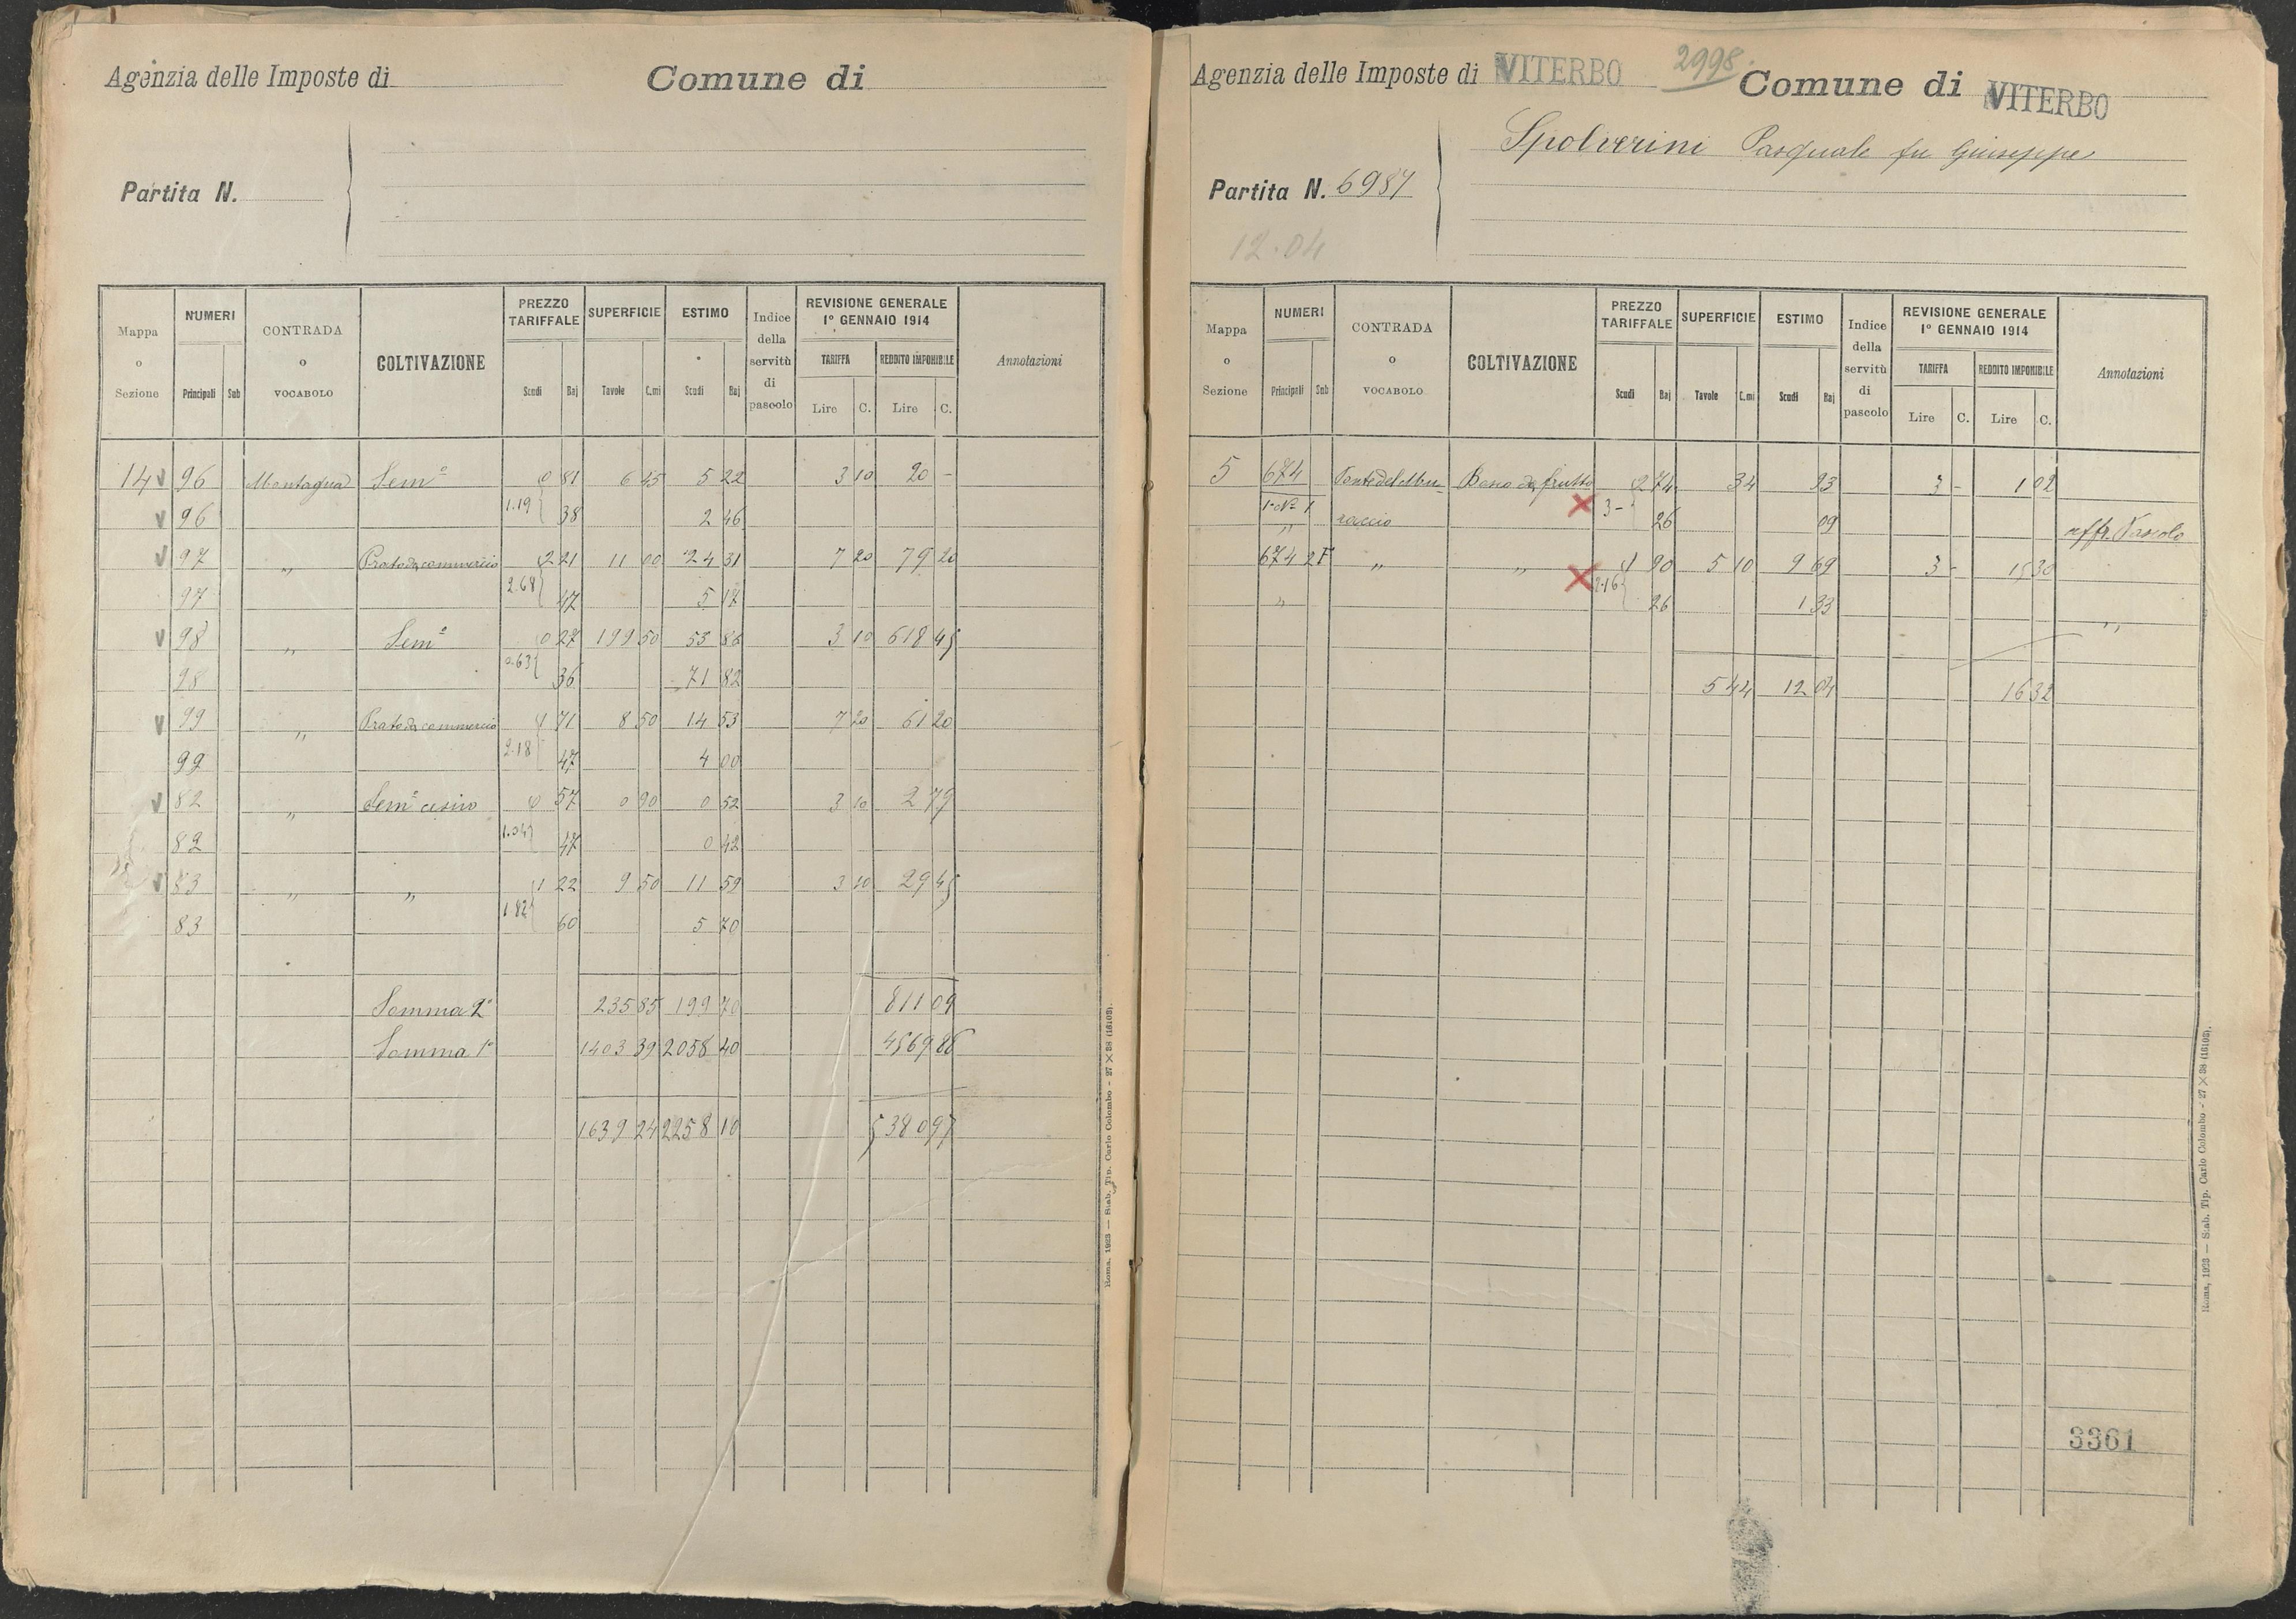 Agenzia delle Imposte di
Comune di
Partita N.
Mappa o Sezione | NUMERI Principali Sub | CONTRADA o VOCABOLO | COLTIVAZIONE | PREZZO TARIFFALE Scudi Baj | SUPERFICIE Tavole C.mi | ESTIMO Scudi Baj | Indice della servitù di pascolo | REVISIONE GENERALE 1º GENNAIO 1914 TARIFFA Lire C. REDDITO IMPONIBILE Lire C. | Annotazioni
14 V 96 Montagna Semº 0 81 6 45 5 22 3 10 20 -
V 96 1.19 38 2 46
V 97 " Prato da commercio 2 21 11 00 24 31 7 20 79 20
97 2.68 47 5 17
V 98 " Semº 0 27 199 50 53 86 3 10 618 45
98 0.63 36 71 82
V 99 " Prato da commercio 1 71 8 50 14 53 7 20 61 20
99 2.18 47 4 00
V 82 " Semº cesivo 0 57 0 90 0 52 3 10 2 79
82 1.04 47 0 42
V 83 " " 1 22 9 50 11 59 3 10 29 45
83 1.82 60 5 70
Somma 2ª 235 85 199 70 811 09
Somma 1ª 1403 39 2058 40 4569 88
1639 24 2258 10 5380 97
Roma, 1923 — Stab. Tip. Carlo Colombo - 27 × 38 (16103).
Agenzia delle Imposte di VITERBO 2998. Comune di VITERBO
Spolverini Pasquale fu Giuseppe
Partita N. 6987
12.04
Mappa o Sezione | NUMERI Principali Sub | CONTRADA o VOCABOLO | COLTIVAZIONE | PREZZO TARIFFALE Scudi Baj | SUPERFICIE Tavole C.mi | ESTIMO Scudi Baj | Indice della servitù di pascolo | REVISIONE GENERALE 1º GENNAIO 1914 TARIFFA Lire C. REDDITO IMPONIBILE Lire C. | Annotazioni
5 674 Fonte del Mu- Bosco da frutto 2 74 34 93 3 - 1 02
" raccio 3 - 26 09 affr. Pascolo
674 " " 1 90 5 10 9 69 3 - 15 30
" 2.16 26 1 33 "
5 44 12 04 16 32
3361
Roma, 1923 — Stab. Tip. Carlo Colombo - 27 × 38 (16103).